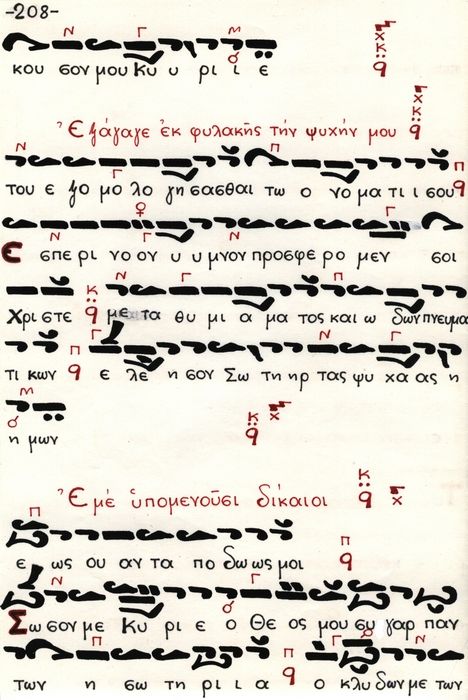 -208-
κου σον μου Κυ υ ρι ι ε
Ἐξάγαγε ἐκ φυλακῆς τὴν ψυχήν μου
του ε ξο μο λο γη σασθαι τω ο νο μα τι ι σου
Ε σπε ρι νο ον υ υ μνον προσφε ρο μεν σοι
Χρι στε με τα θυ μι α μα τος και ω δων πνευμα
τι κων ε λε η σον Σω τη ηρ τας ψυ χα ας η
η μων
Ἐμέ ὑπομενοῦσι δίκαιοι
ε ως ου αν τα πο δω ως μοι
Σω σον με Κυ ρι ε ο Θε ος μου συ γαρ παν
των η σω τη ρι ι α ο κλυ δων με των